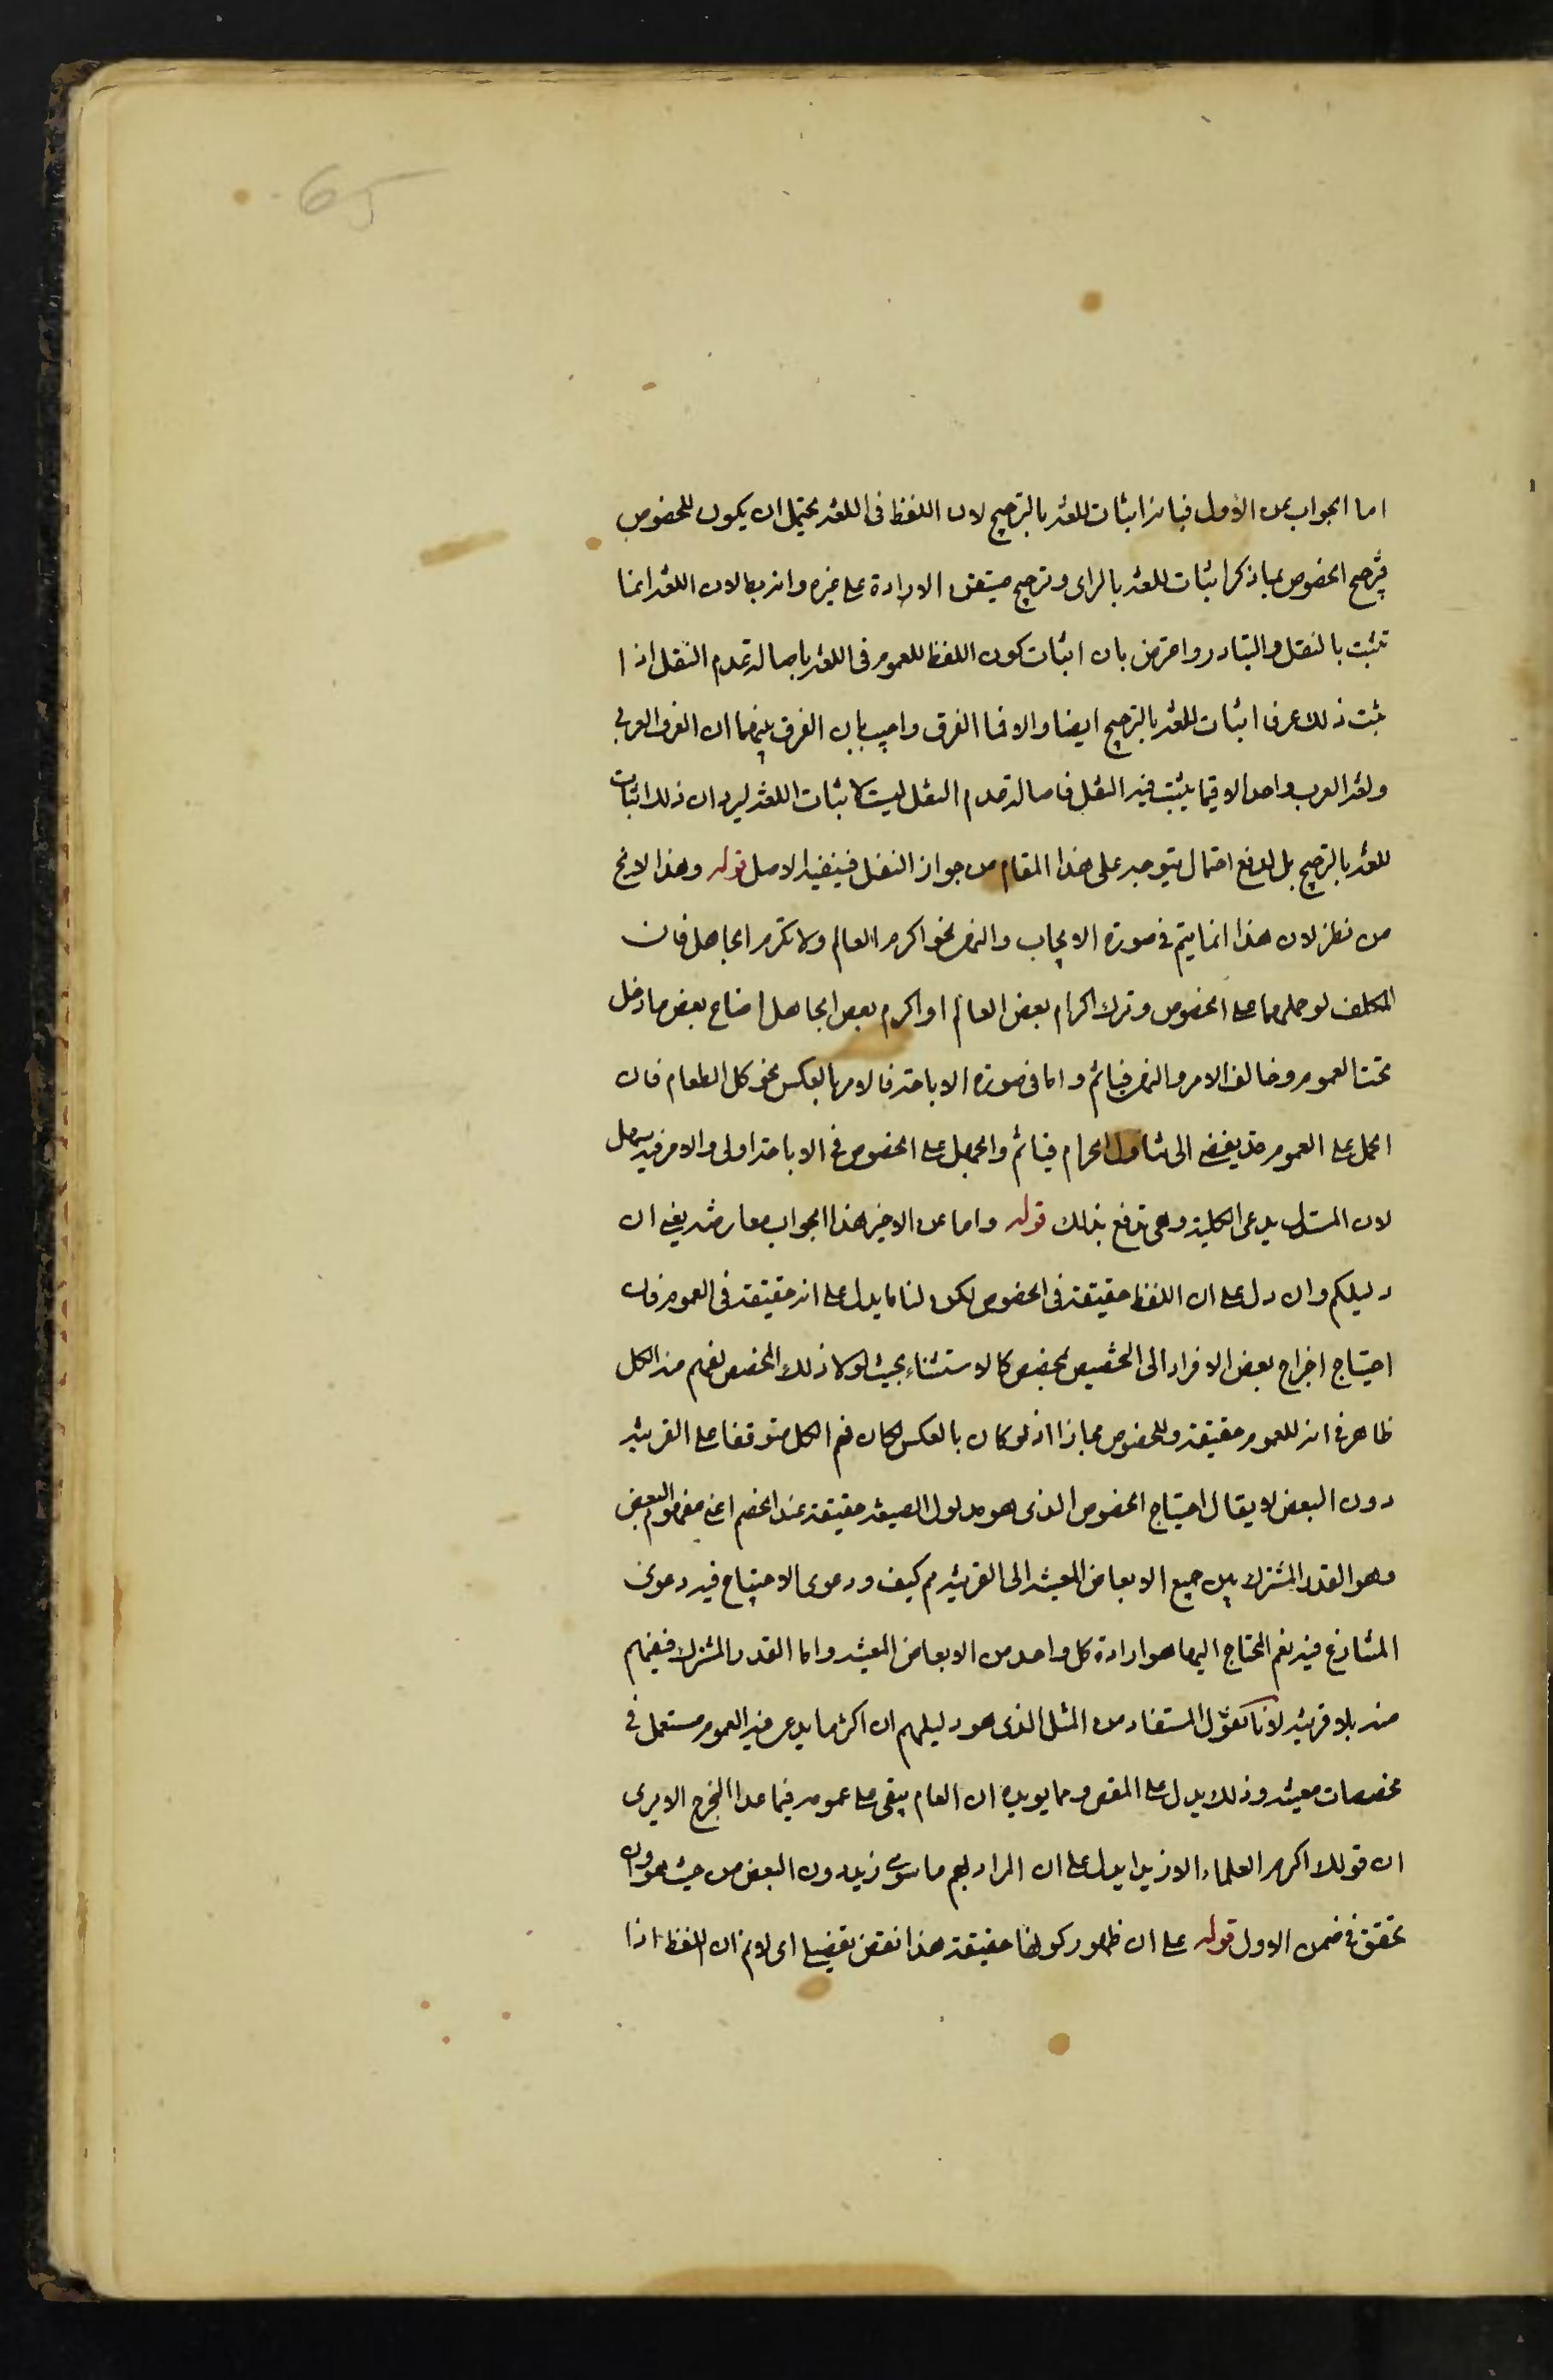 65
اما الجواب عن الاول فبانه اثبات للغة بالترجيح لان اللفظ فى اللغة يحتمل ان يكون للخصوص
فترجيح الخصوص بما ذكر اثبات للغة بالراى وترجيح متيقن الارادة على غيره وانه بط لان اللغة انما
تثبت بالنقل والتبادر واعترض بان اثبات كون اللفظ للعموم فى اللغة باصالة عدم النقل اذا
ثبت ذلك عرفا اثبات للغة بالترجيح ايضا والا فما الفرق واجيب بان الفرق بينهما ان العرف العربى
ولغة العرب واحد الا فيما يثبت فيه النقل فاصالة عدم النقل ليست لاثبات اللغة ليرد ان ذلك اثبات
للغة بالترجيح بل لدفع احتمال يتوجه على هذا المقام من جواز النقل فينفيه الاصل قوله وهذا لا يخ
من نظر لان هذا انما يتم فى صورة الايجاب والنهى نحو اكرم العالم ولا تكرم الجاهل فان
المكلف لو حملهما على الخصوص وترك اكرام بعض العالم او اكرم بعض الجاهل اضاع بعض ما دخل
تحت العموم وخالف الامر والنهى فياثم واما فى صورة الاباحة فالامر بالعكس نحو كل الطعام فان
الحمل على العموم قد يفضى الى تناول الحرام فياثم والحمل على الخصوص فى الاباحة اولى والامر فيه سهل
لان المستدل يدعى الكلية وهى تدفع بذلك قوله واما عن الاخير هذا الجواب معارضة يعنى ان
دليلكم وان دل على ان اللفظ حقيقة فى الخصوص لكن لنا ما يدل على انه حقيقة فى العموم فان
احتياج اخراج بعض الافراد الى التخصيص بمخصص كالاستثناء بحيث لولا ذلك المخصص لفهم منه الكل
ظاهر فى انه للعموم حقيقة وللخصوص مجازا اذ لو كان بالعكس لكان فهم الكل متوقفا على القرينة
دون البعض لا يقال احتياج الخصوص الذى هو مدلول الصيغة حقيقة عند الخصم اعنى مفهوم البعض
وهو القدر المشترك بين جميع الابعاض المعينة الى القرينة مم كيف ودعوى الاحتياج فيه دعوى
المتنازع فيه نعم المحتاج اليها هو ارادة كل واحد من الابعاض المعينة واما القدر المشترك فيفهم
منه بلا قرينة لانا نقول المستفاد من المثل الذى هو دليلهم ان اكثر ما يدعى فيه العموم مستعمل فى
مخصصات معينة وذلك يدل على المقص ومما يويده ان العام يبقى على عمومه فيما عدا المخرج الا يرى
ان قولك اكرم العلماء الا زيدا يدل على ان المراد بهم ما سوى زيد دون البعض من حيث هو وان
تحقق فى ضمن الاول قوله على ان ظهور كونها حقيقة هذا نقض تفصيلى اى لا نم ان اللفظ اذا